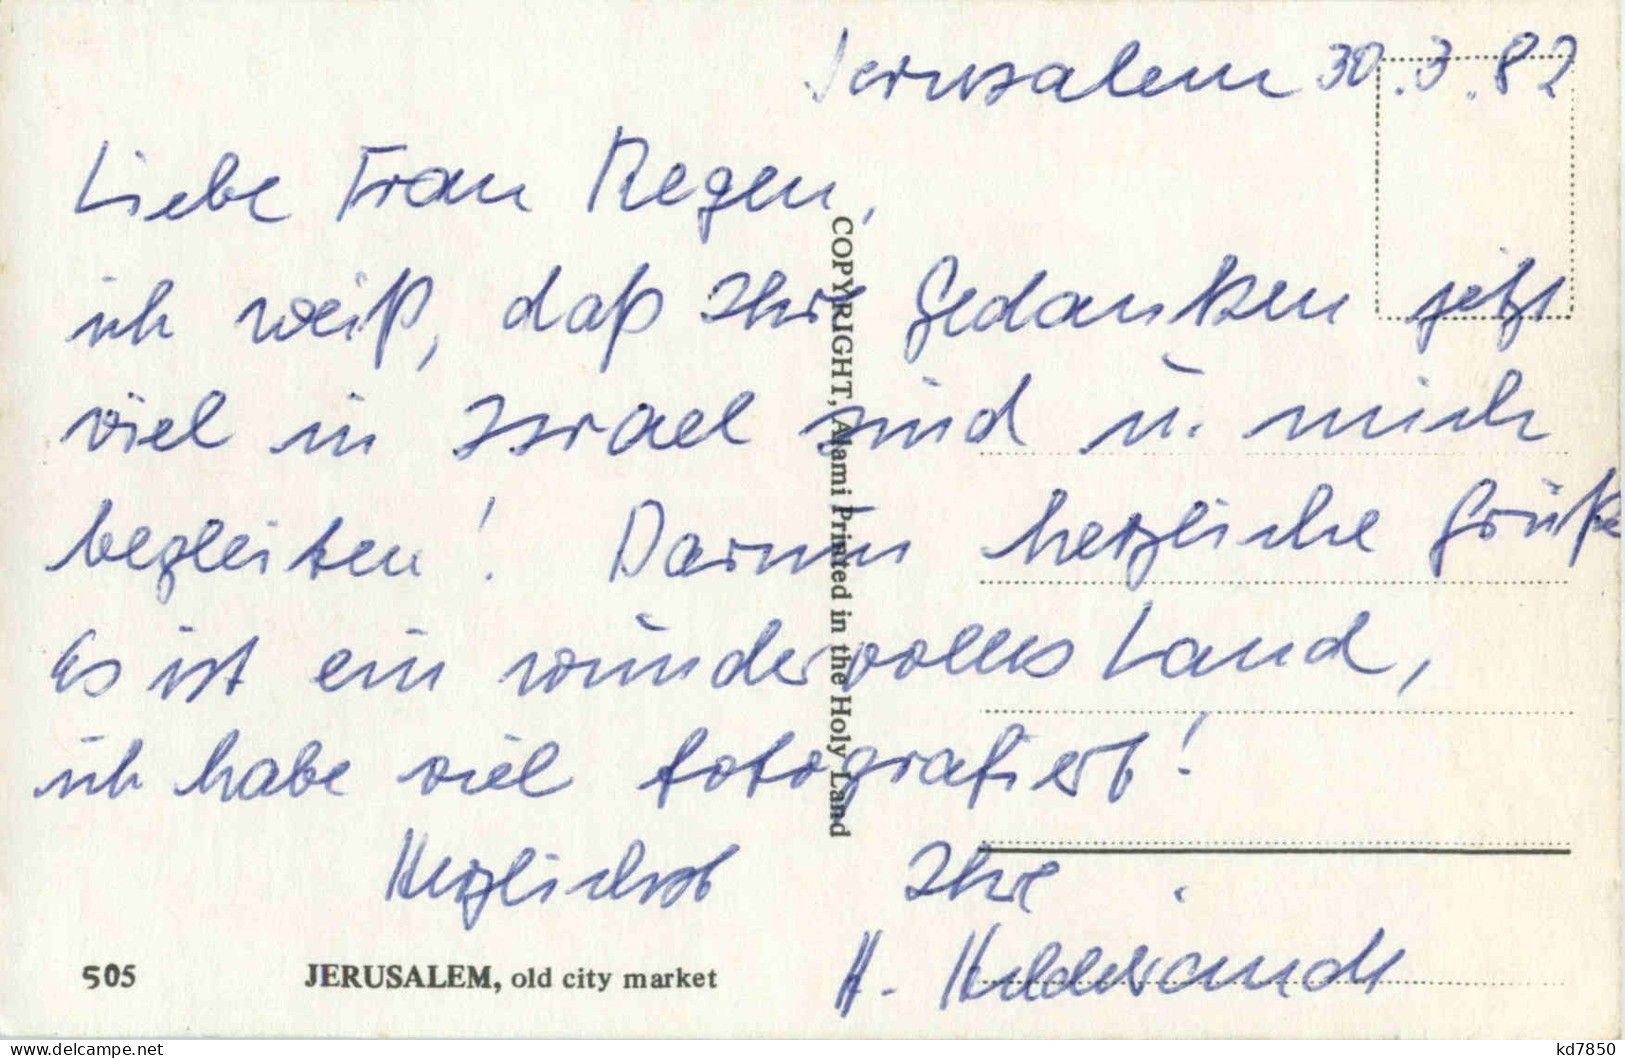 Jerusalem 30.3.82
Liebe Frau Regen,
ich weiß, daß Ihre Gedanken jetzt
viel in Israel sind u. mich
begleiten! Darum herzliche Grüße
Es ist ein wundervolles Land,
ich habe viel fotografiert!
Herzlichst Ihre
H. Hildebrandt
COPYRIGHT, Alami Printed in the Holy Land
505 JERUSALEM, old city market
delcampe.net
kd7850